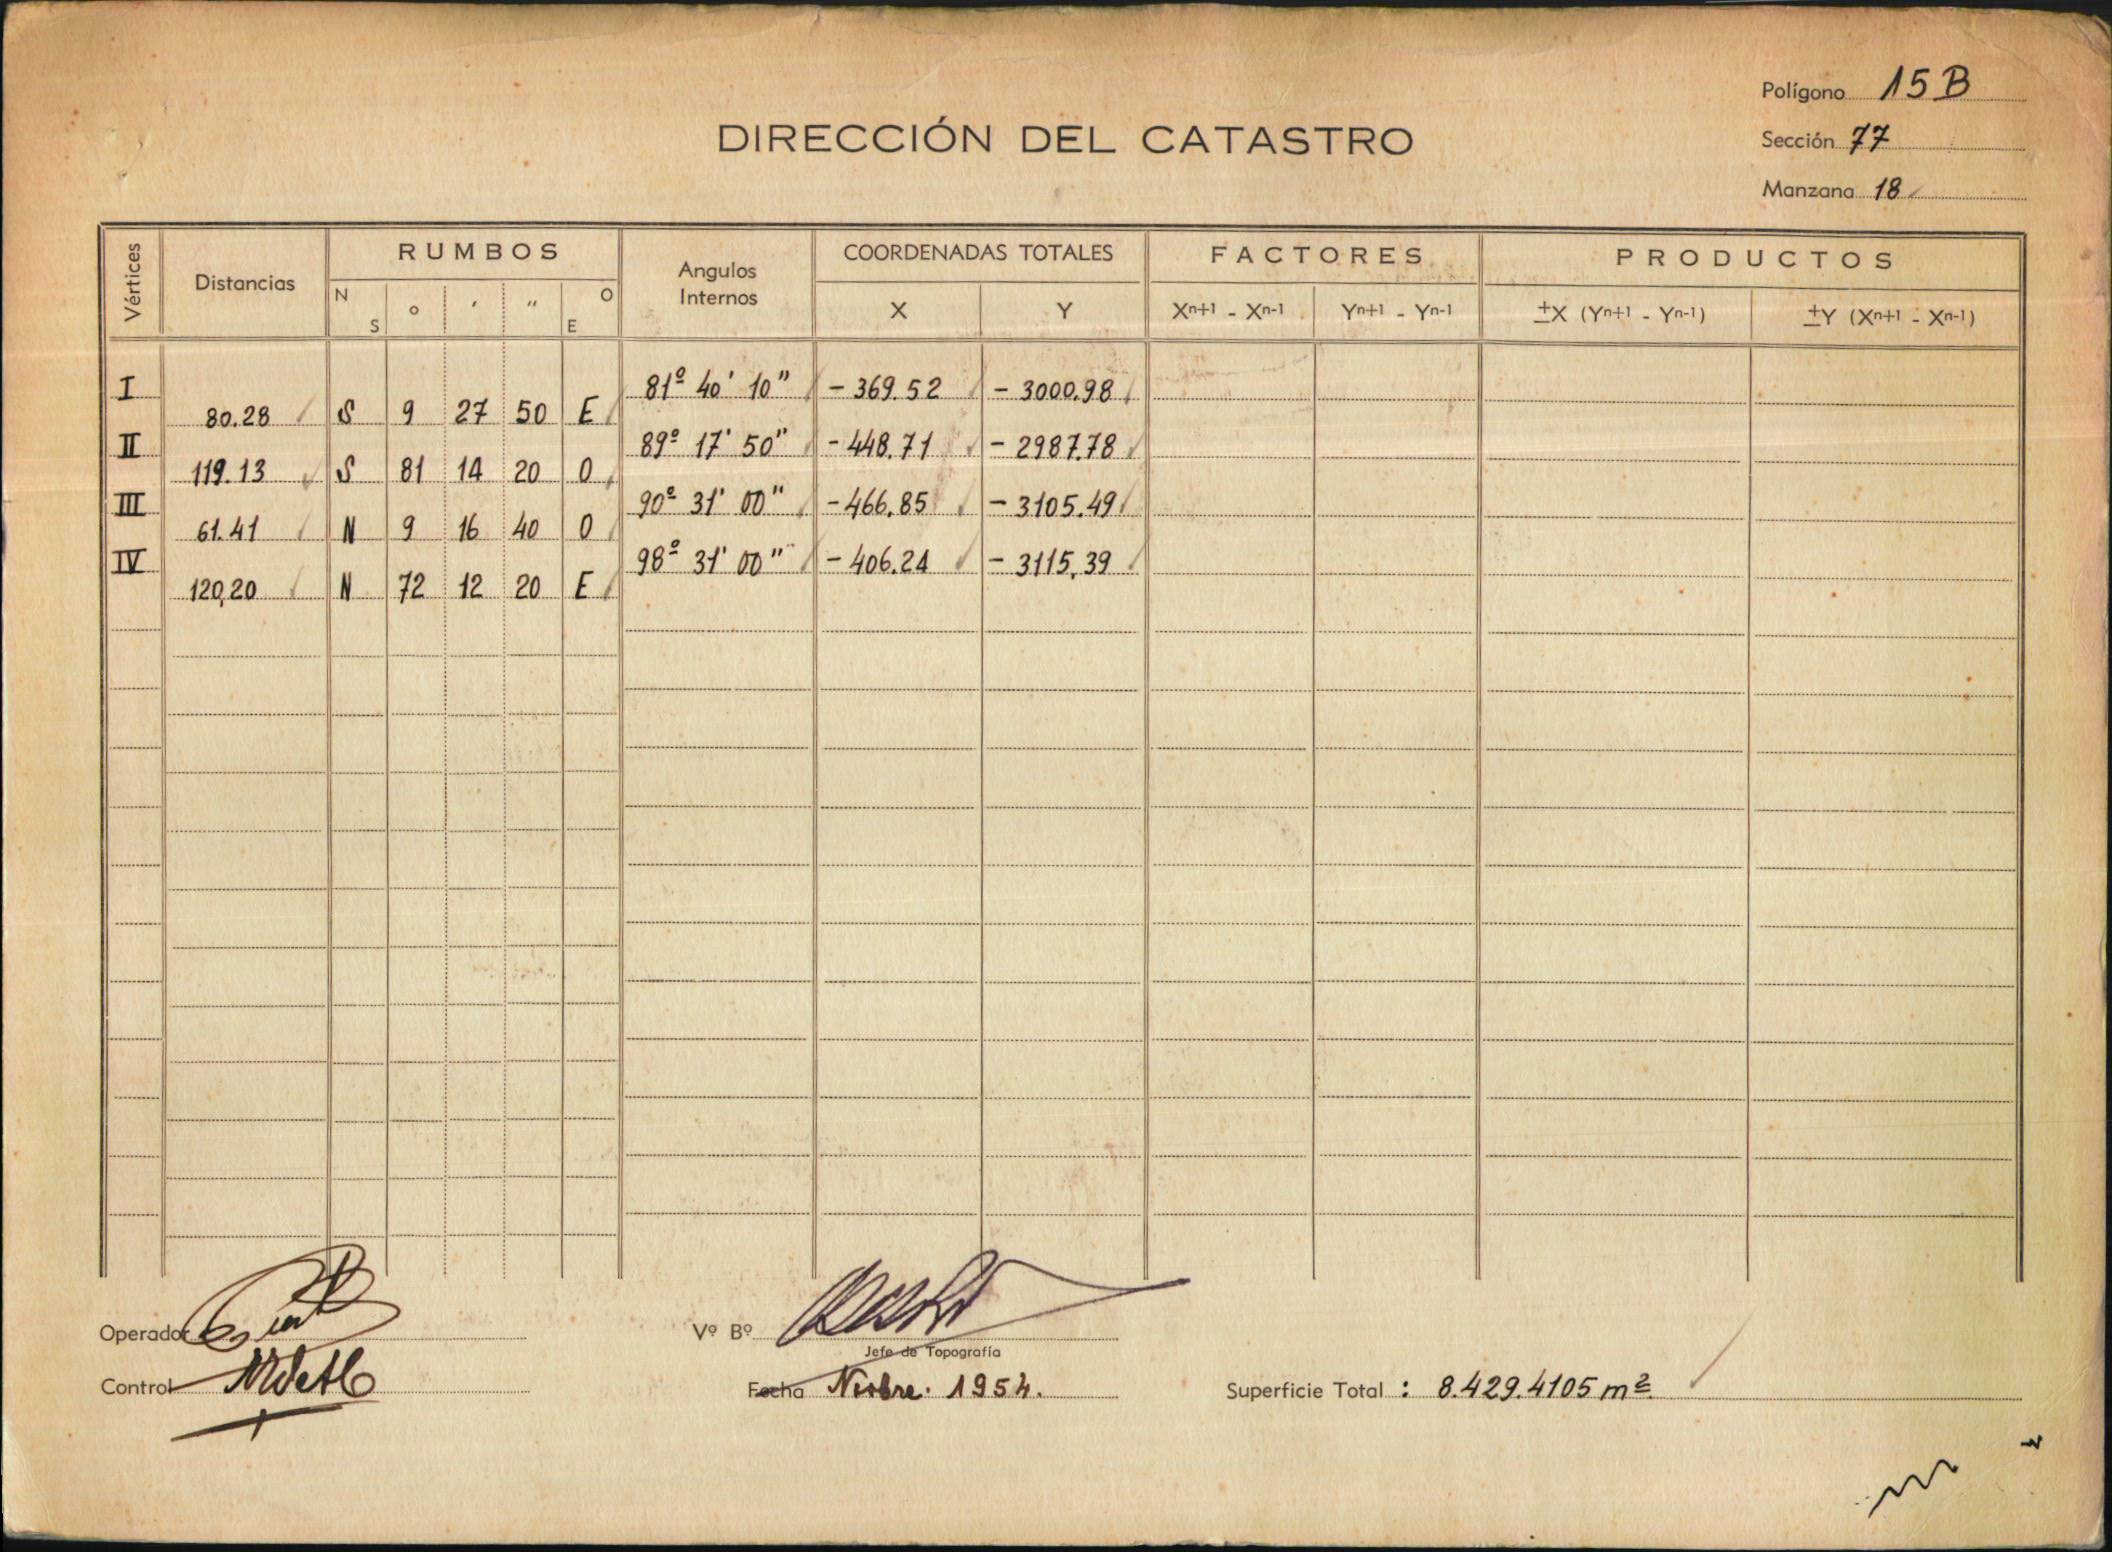 Polígono 15 B
DIRECCIÓN DEL CATASTRO
Sección 77
Manzana 18
Vértices Distancias RUMBOS Angulos Internos COORDENADAS TOTALES FACTORES PRODUCTOS
N S ° ' " O E X Y Xn+1 - Xn-1 Yn+1 - Yn-1 ±X (Yn+1 - Yn-1) ±Y (Xn+1 - Xn-1)
I 81º 40' 10" - 369.52 - 3000.98
80.28 S 9 27 50 E
II 89º 17' 50" - 448.71 - 2987.78
119.13 S 81 14 20 O
III 90º 31' 00" - 466.85 - 3105.49
61.41 N 9 16 40 O
IV 98º 31' 00" - 406.24 - 3115,39
120,20 N 72 12 20 E
Operador Vº Bº
Jefe de Topografía
Control Fecha Nvbre. 1954. Superficie Total : 8.429.4105 m².